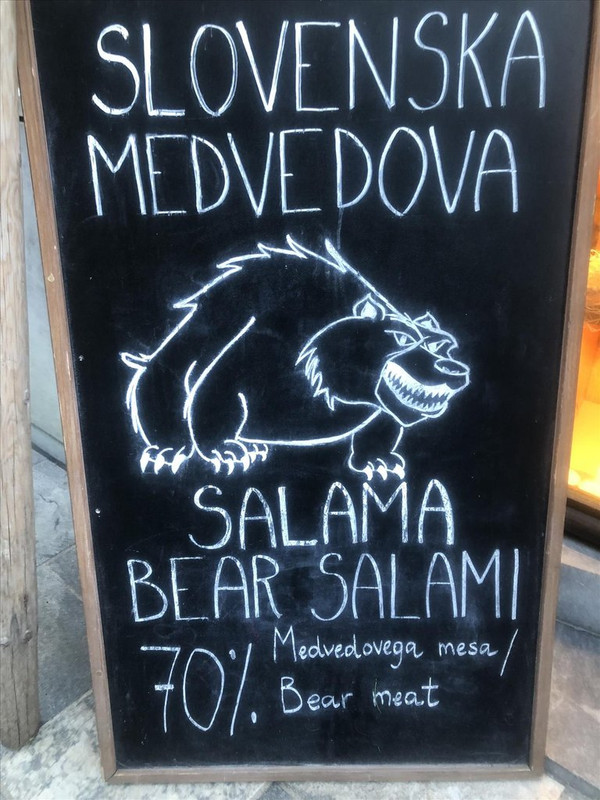 SLOVENSKA
MEDVEDOVA
SALAMA
BEAR SALAMI
70% Medvedovega mesa /
Bear meat